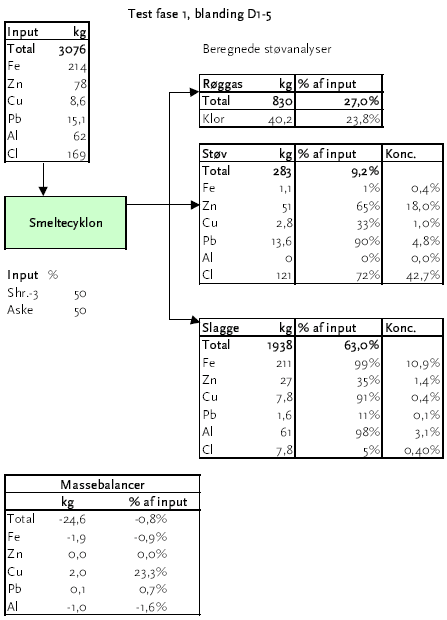 Test fase 1, blanding D1-5
Input kg
Total 3076
Fe 214
Zn 78
Cu 8,6
Pb 15,1
Al 62
Cl 169
Beregnede støvanalyser
Røggas kg % af input
Total 830 27,0%
Klor 40,2 23,8%
Støv kg % af input Konc.
Total 283 9,2%
Fe 1,1 1% 0,4%
Zn 51 65% 18,0%
Cu 2,8 33% 1,0%
Pb 13,6 90% 4,8%
Al 0 0% 0,0%
Cl 121 72% 42,7%
Smeltecyklon
Input %
Shr.-3 50
Aske 50
Slagge kg % af input Konc.
Total 1938 63,0%
Fe 211 99% 10,9%
Zn 27 35% 1,4%
Cu 7,8 91% 0,4%
Pb 1,6 11% 0,1%
Al 61 98% 3,1%
Cl 7,8 5% 0,40%
Massebalancer
kg % af input
Total -24,6 -0,8%
Fe -1,9 -0,9%
Zn 0,0 0,0%
Cu 2,0 23,3%
Pb 0,1 0,7%
Al -1,0 -1,6%